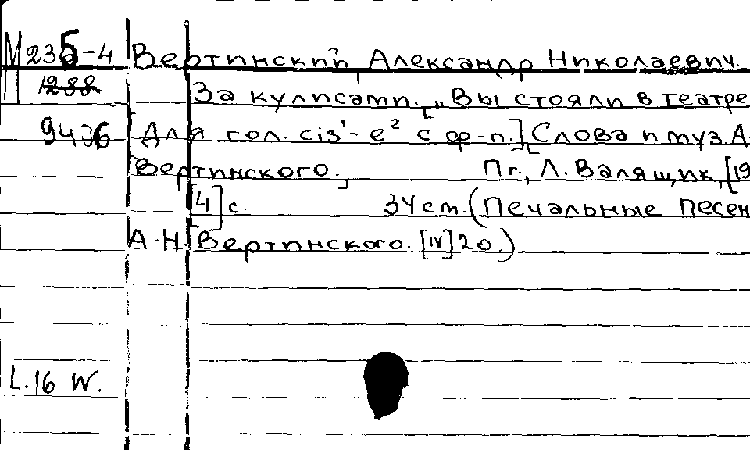 М 235-4 Вертинский, Александр Николаевич.
1288 За кулисами. "Вы стояли в театре
9436 [Для гол. cis¹- e² с ф-п.] [Слова и муз. А.
Вертинского.] Пг., Л. Валящик, [19
[4] с. 34 cm. (Печальные песен
А. Н. Вертинского. [IV] 20.)
L. 16 W.